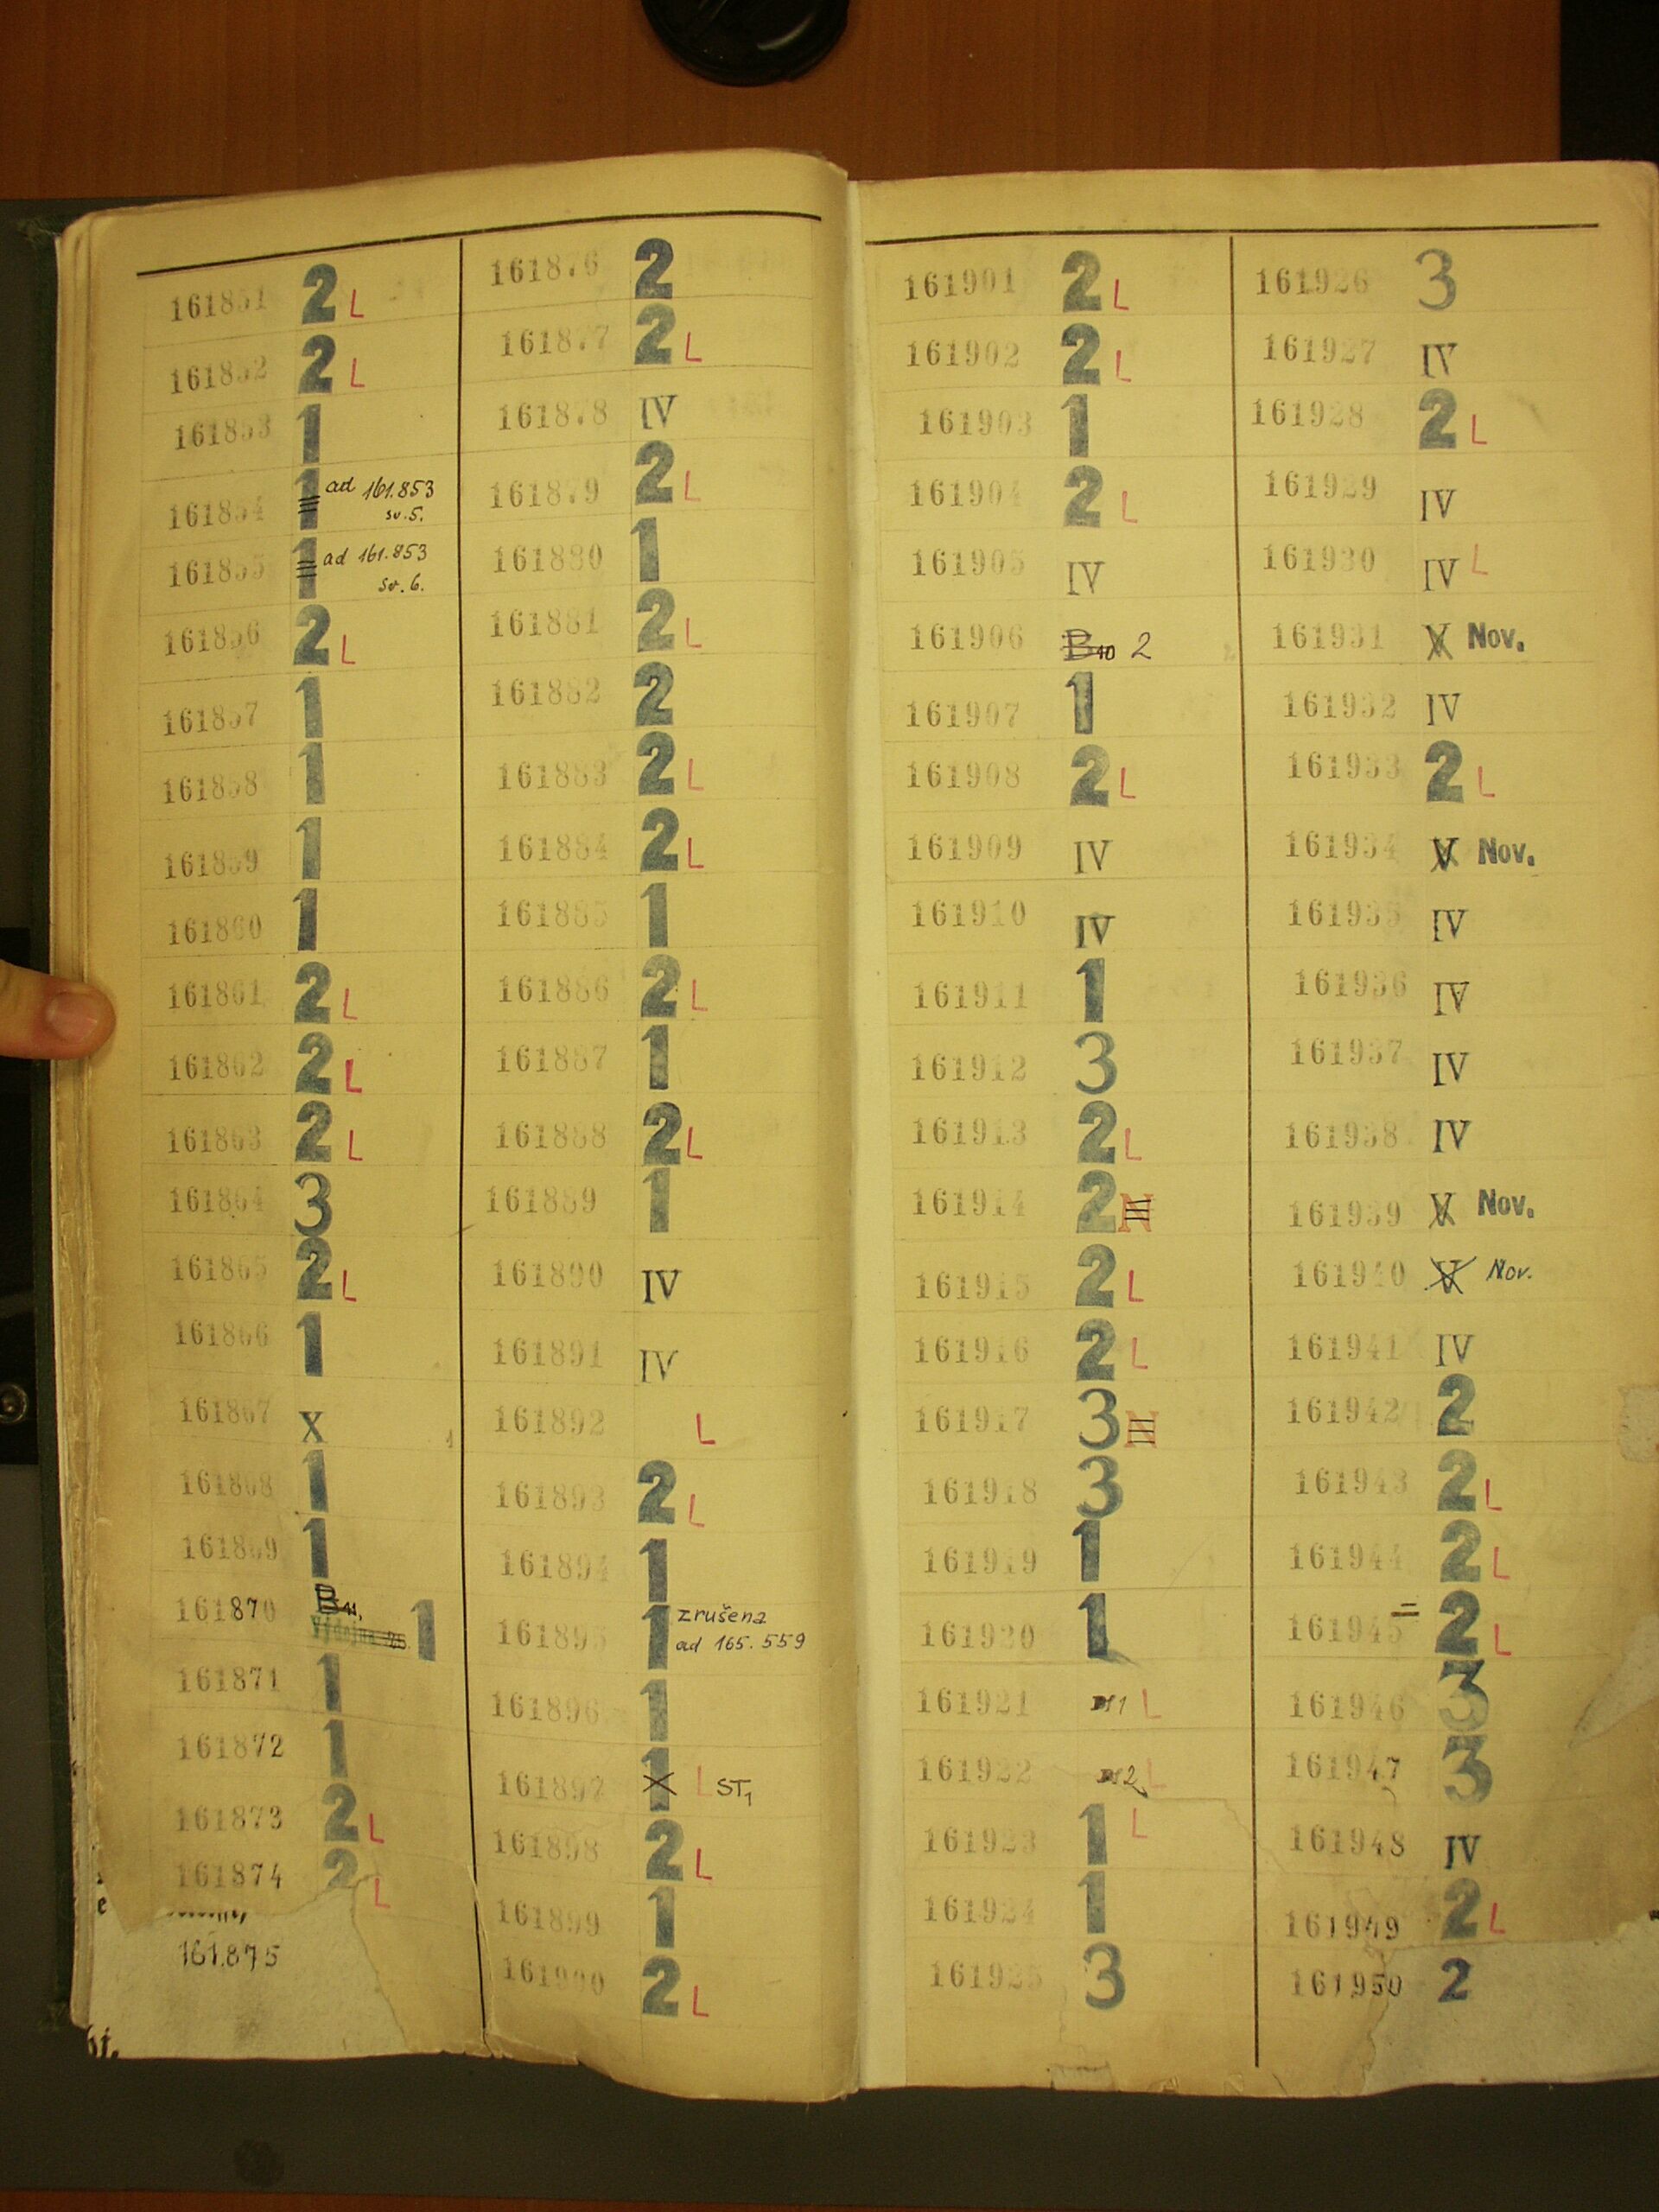 161851 2 L
161852 2 L
161853 1
161854 1 ad 161.853
sv. 5.
161855 1 ad 161.853
sv. 6.
161856 2 L
161857 1
161858 1
161859 1
161860 1
161861 2 L
161862 2 L
161863 2 L
161864 3
161865 2 L
161866 1
161867 X
161868 1
161869 1
161870 B 1
161871 1
161872 1
161873 2 L
161874 2 L
161.875
161876 2
161877 2 L
161878 IV
161879 2 L
161880 1
161881 2 L
161882 2
161883 2 L
161884 2 L
161885 1
161886 2 L
161887 1
161888 2 L
161889 1
161890 IV
161891 IV
161892 L
161893 2 L
161894 1
161895 1 zrušena
ad 165.559
161896 1
161897 1 L ST1
161898 2 L
161899 1
161900 2 L
161901 2 L
161902 2 L
161903 1
161904 2 L
161905 IV
161906 B10 2
161907 1
161908 2 L
161909 IV
161910 IV
161911 1
161912 3
161913 2 L
161914 2 N
161915 2 L
161916 2 L
161917 3 N
161918 3
161919 1
161920 1
161921 L
161922 L
161923 1 L
161924 1
161925 3
161926 3
161927 IV
161928 2 L
161929 IV
161930 IV L
161931 V Nov.
161932 IV
161933 2 L
161934 V Nov.
161935 IV
161936 IV
161937 IV
161938 IV
161939 V Nov.
161940 V Nov.
161941 IV
161942 2
161943 2 L
161944 2 L
161945 2 L
161946 3
161947 3
161948 IV
161949 2 L
161950 2